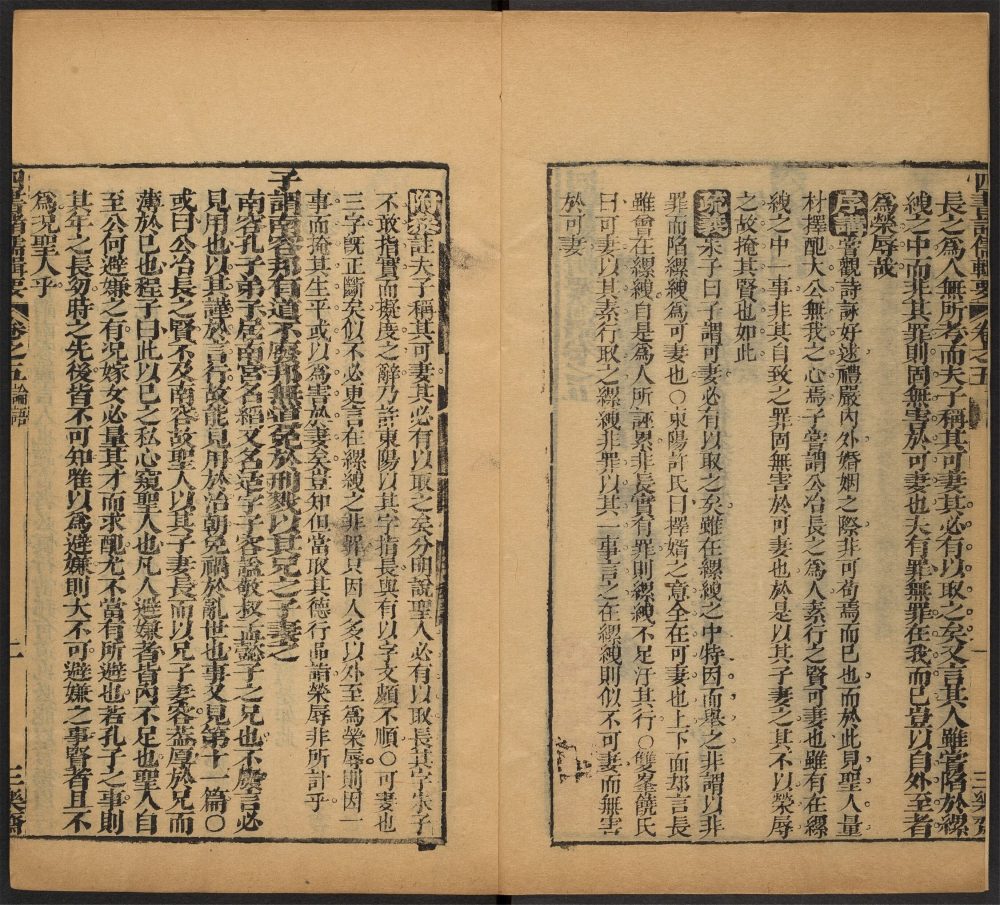 四書諸儒輯要 卷之五
三樂齋
長之爲人無所考而夫子稱其可妻其必有以取之矣又言其人雖嘗陷於縲
絏之中而非其罪則固無害於可妻也夫有罪無罪在我而已豈以自外至者
爲榮辱哉
嘗觀詩詠好逑禮嚴內外婚姻之際非可苟焉而已也而於此見聖人量
材擇配大公無我之心焉子嘗謂公冶長之爲人素行之賢可妻也雖有在縲
絏之中一事非其自致之罪固無害於可妻也於是以其子妻之其不以榮辱
之故掩其賢也如此
朱子曰子謂可妻必有以取之矣雖在縲絏之中特因而舉之非謂以非
罪而陷縲絏爲可妻也○東陽許氏曰擇婿之意全在可妻也上下面却言長
雖曾在縲絏自是爲人所誣累非長實有罪則縲絏不足汙其行○雙峯饒氏
曰可妻以其素行取之縲絏非罪以其一事言之在縲絏則似不可妻而無害
於可妻
附參註夫子稱其可妻其必有以取之矣分明說聖人必有以取長其字朱子
不敢指實而擬度之辭乃許東陽以其字指長與有以字文頗不順○可妻也
三字旣正斷矣似不必更言在縲絏之非罪只因人多以外至爲榮辱則因一
事而掩其生平或以爲害於妻矣豈知但當取其德行品詣榮辱非所計乎
子謂南容邦有道不廢邦無道免於刑戮以其兄之子妻之
南容孔子弟子居南宮名縚又名适字子容謚敬叔孟懿子之兄也不廢言必
見用也以其謹於言行故能見用於治朝免禍於亂世也事又見第十一篇○
或曰公冶長之賢不及南容故聖人以其子妻長而以兄子妻容葢厚於兄而
薄於已也程子曰此以已之私心窺聖人也凡人避嫌者皆內不足也聖人自
至公何避嫌之有况嫁女必量其才而求配尤不當有所避也若孔子之事則
其年之長幼時之先後皆不可知惟以爲避嫌則大不可避嫌之事賢者且不
爲况聖人乎
四書諸儒輯要 卷之五 論語 二 三樂齋